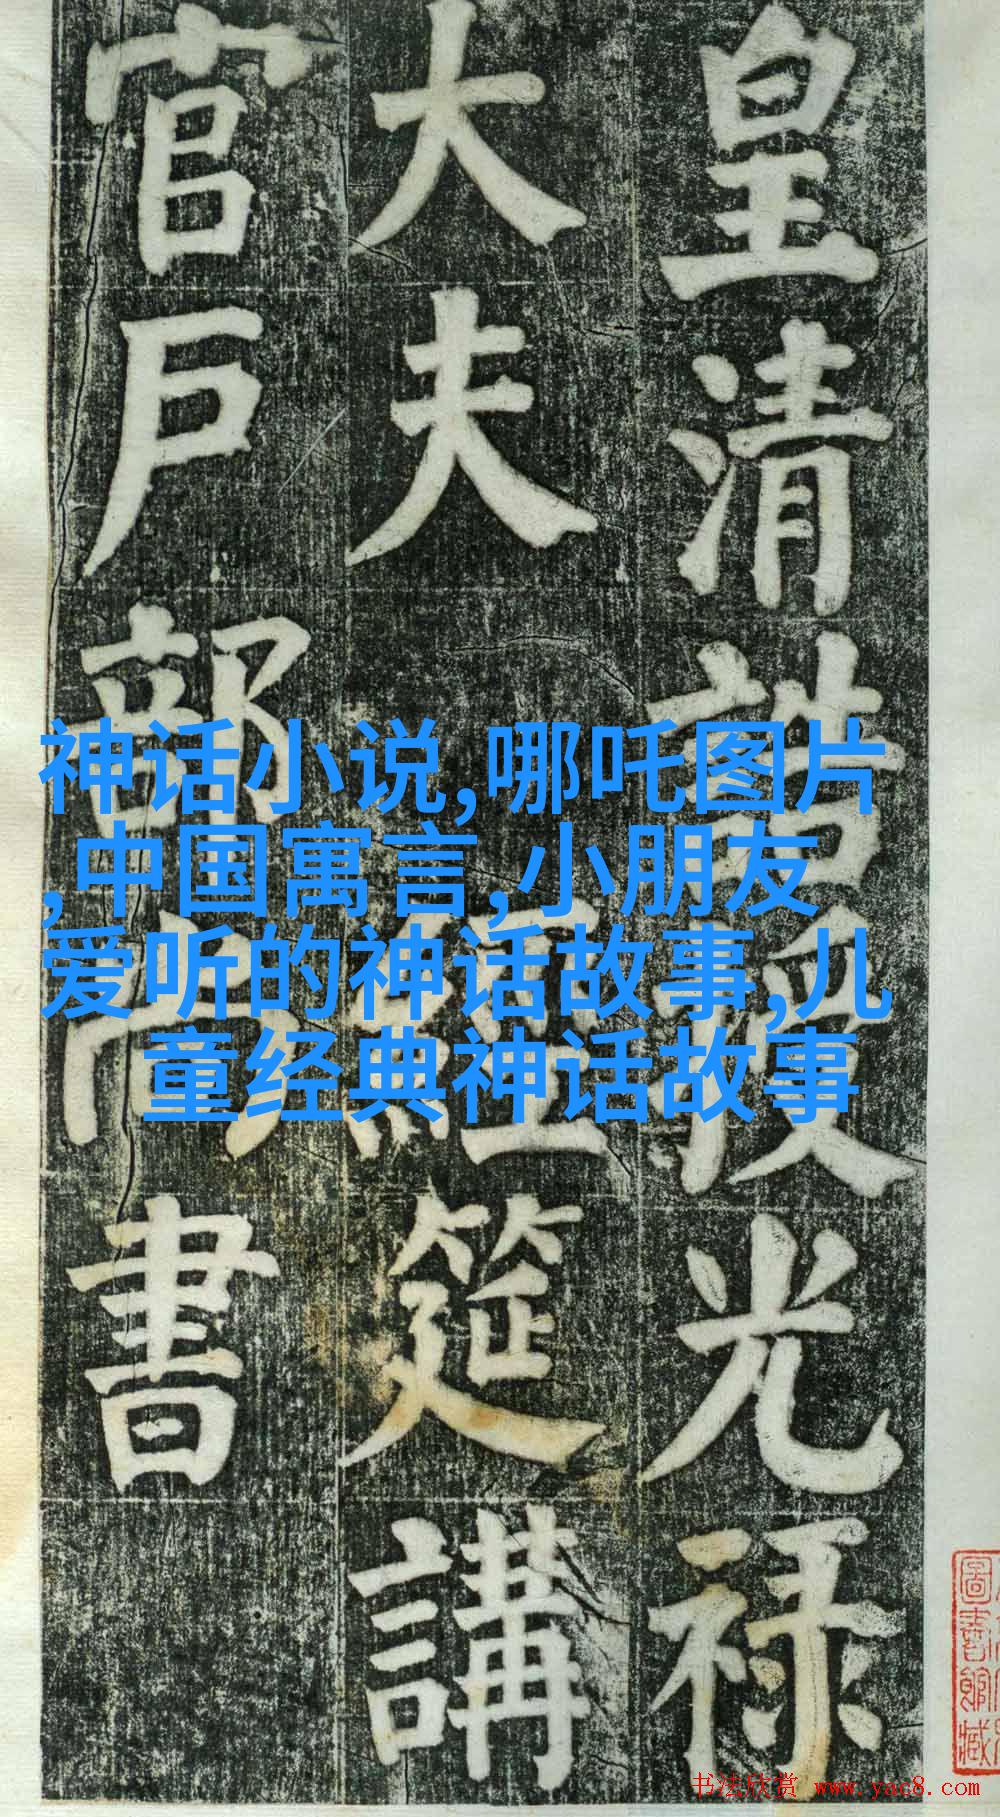 皇清誥授光禄
大夫經筵講
官戶部尚書
神话小说,哪吒图片
,中国寓言,小朋友
爱听的神话故事,儿
童经典神话故事
圖書館藏
书法欣赏 www.yac8.com